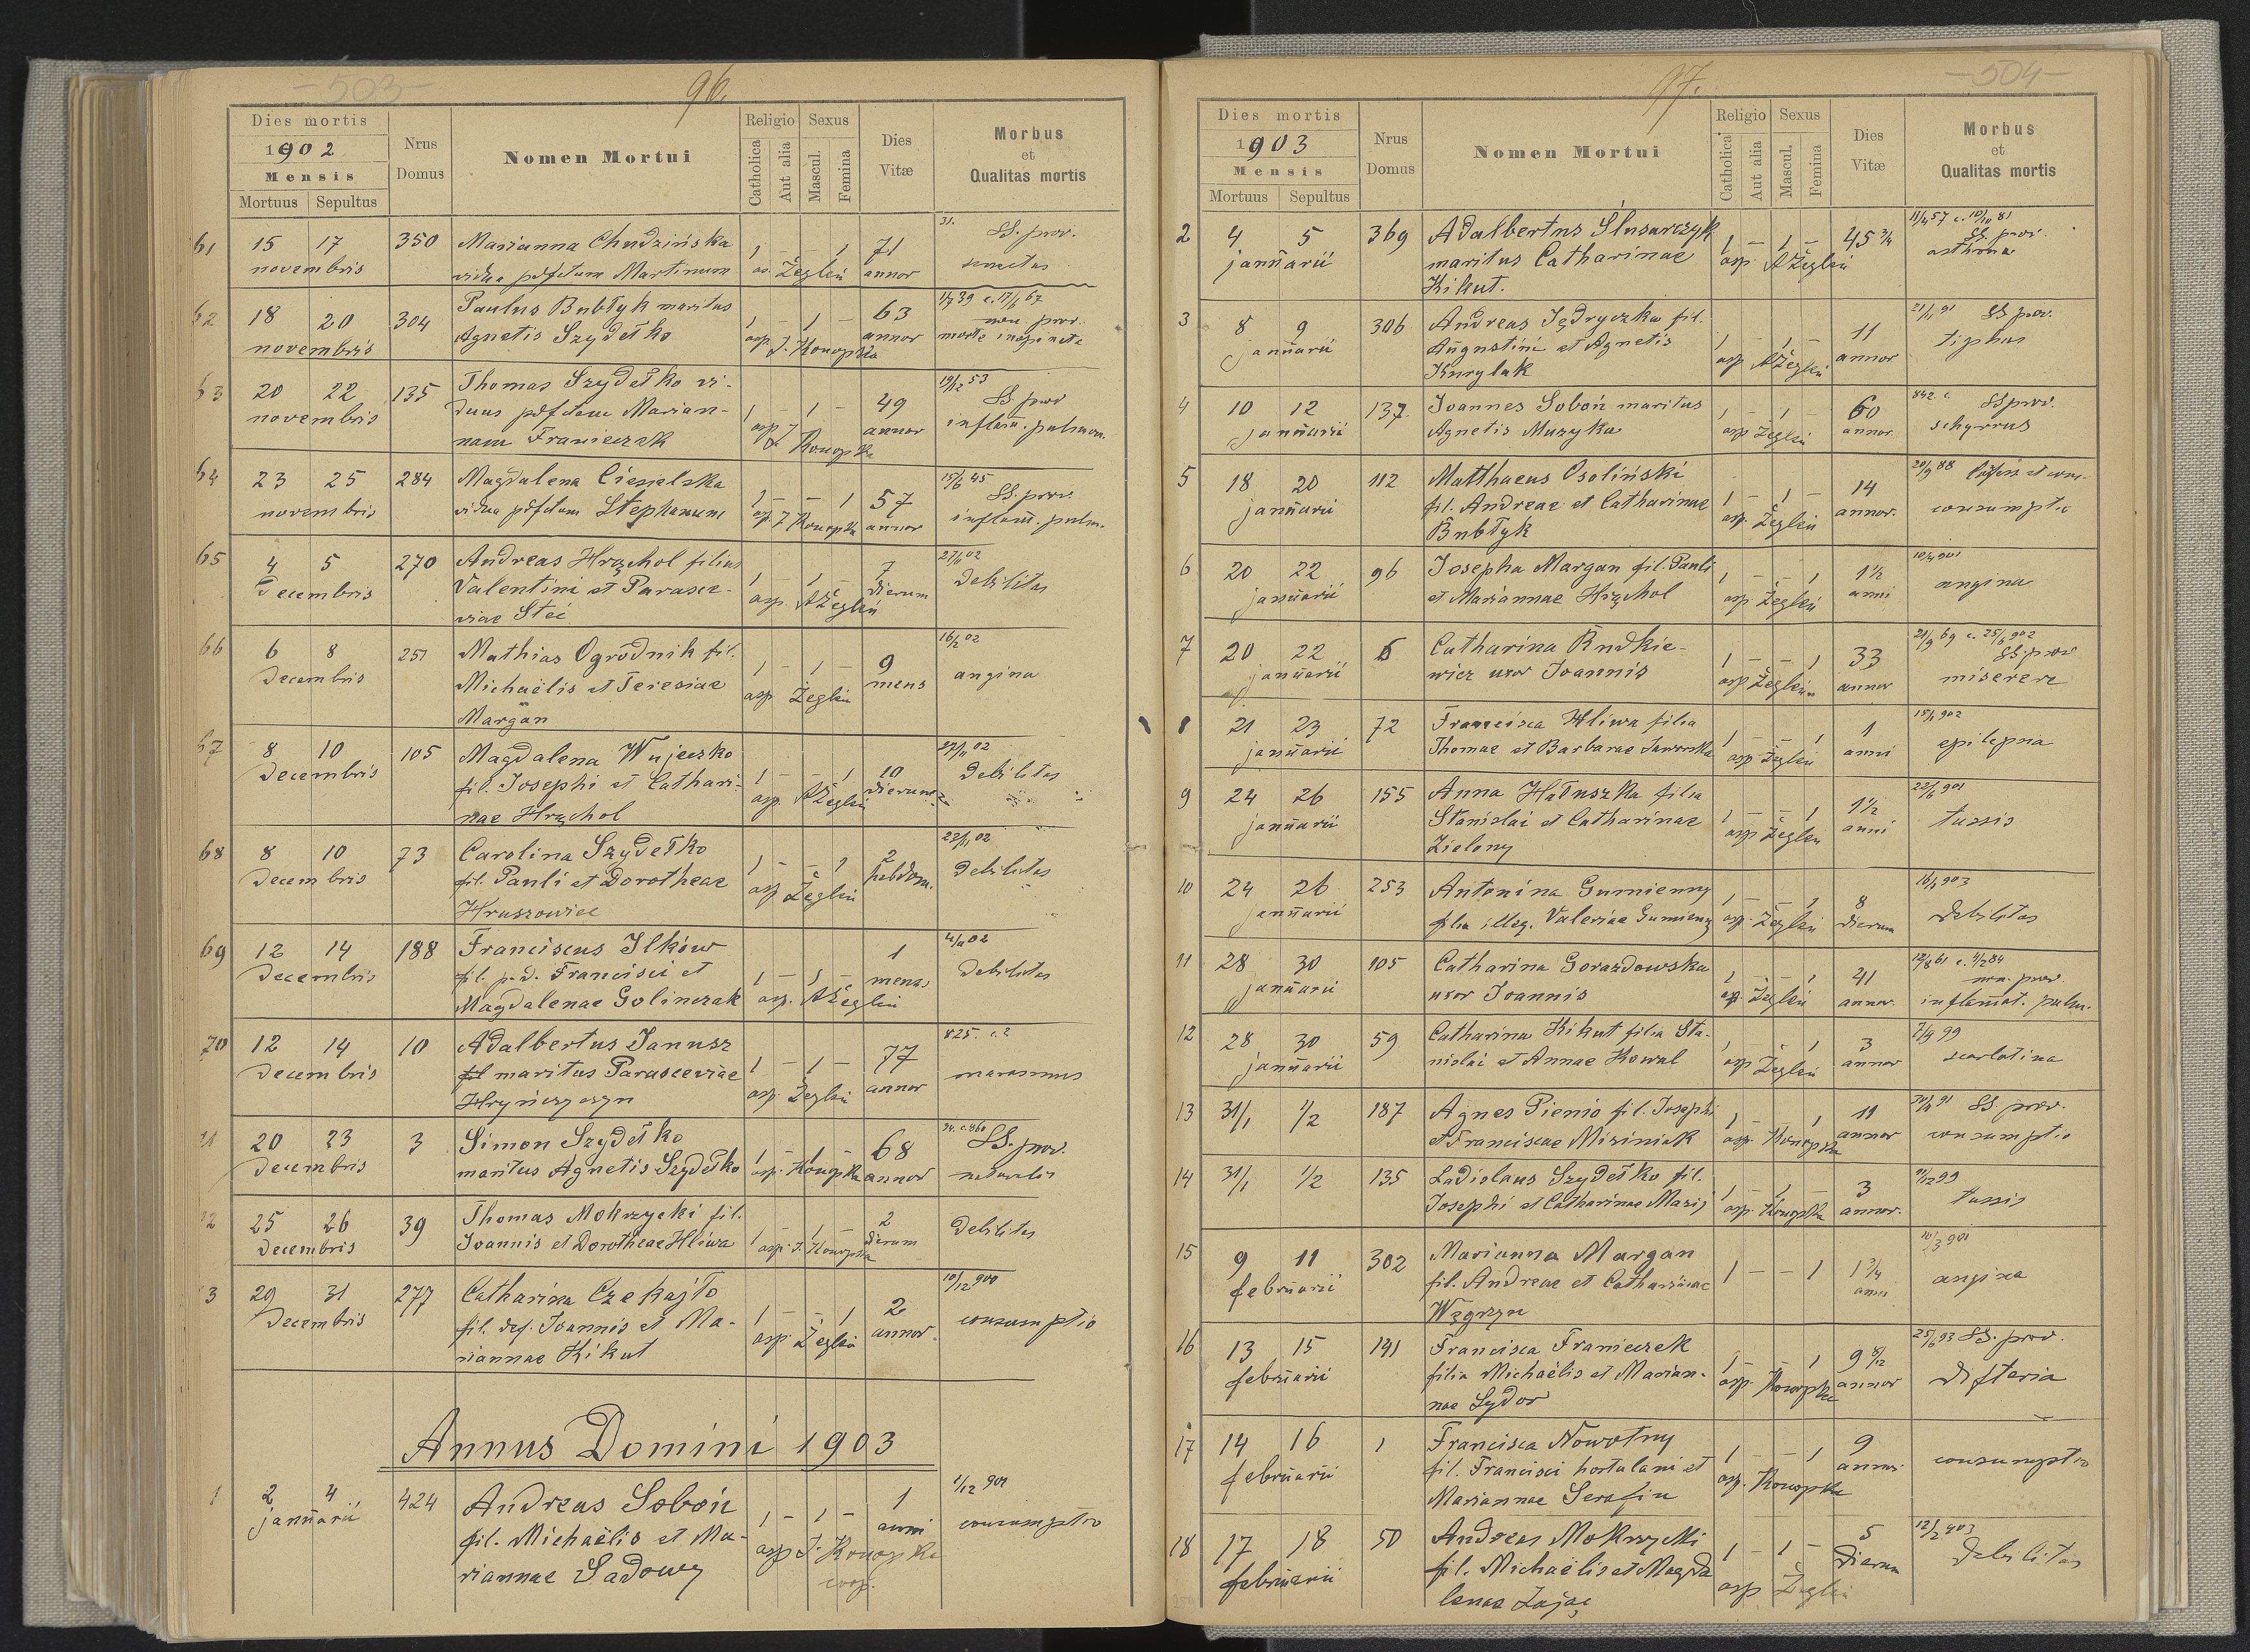 - 503 -
96.
Dies mortis
1902
Mensis
Mortuus Sepultus
Nrus Domus
Nomen Mortui
Religio
Catholica
Aut alia
Sexus
Mascul.
Femina
Dies Vitæ
Morbus
et
Qualitas mortis
61 15 17 350 Marianna Chudzińska 1 - - 1 71 31. SS. prov.
novembris vidua pdfctum Martinum Żegleń annor senectus
62 18 20 304 Paulus Bubłyk maritus 1 - 1 - 63 1/7 39 c. 17/6 67
novembris Agnetis Szydełko asp. J. Konopka annor non prov.
morte inopinata
63 20 22 135 Thomas Szydełko vi- 1 - 1 - 49 19/12 53 SS prov
novembris duus pdfctam Marian- asp J. Konopka annor inflam. pulmon.
nam Franieczek
64 23 25 284 Magdalena Ciesielska 1 - - 1 57 15/6 45 SS. prov.
novembris vidua pdfctum Stephanum asp. J Konopka annor inflam. pulm.
65 4 5 270 Andreas Hrąchol filius 1 - 1 - 7 27/11 02
Decembris Valentini et Parasce- asp. AŻegleń dierum Debilitas
viae Steć
66 6 8 251 Mathias Ogrodnik fil. 1 - 1 - 9 16/2 02
Decembris Michaëlis et Teresiae asp. Żegleń mens angina
Margan
67 8 10 105 Magdalena Wujeczko 1 - - 1 10 27/11 02
Decembris fil. Josephi et Cathari- asp. AŻegleń dierum Debilitas
nae Hrąchol
68 8 10 73 Carolina Szydełko 1 - - 1 2 22/11 02
Decembris fil. Pauli et Dorotheae asp Żegleń hebdom. Debilitas
Hruszowiec
69 12 14 188 Franciscus Ilków 1 - 1 - 1 4/11 02
Decembris fil. p.d. Francisci et asp. AŻegleń mens Debilitas
Magdalenae Golinczak
70 12 14 10 Adalbertus Janusz 1 - 1 - 77 825. c. ?
Decembris fil maritus Parasceviae asp. Żegleń annor marasmus
Hryńczyszyn
71 20 23 3 Simon Szydełko 1 - 1 - 68 34. c. 860 SS. prov.
Decembris maritus Agnetis Szydełko asp. Konopka annor naturalis
72 25 26 39 Thomas Mokrzycki fil. 1 - 1 - 2 Debilitas
Decembris Joannis et Dorotheae Hliwa asp. J. Konopka dierum
73 29 31 277 Catharina Czekajło 1 - - 1 2 10/12 900
Decembris fil. def. Joannis et Ma- asp. Żegleń annor. consumptio
riannae Kikut
Annus Domini 1903
1 2 4 424 Andreas Soboń 1 - 1 - 1 1/12 901
januarii fil. Michaëlis et Ma- asp J. Konopka anni consumptio
riannae Sadowy coop.
97.
- 504 -
Dies mortis
1903
Mensis
Mortuus Sepultus
Nrus Domus
Nomen Mortui
Religio
Catholica
Aut alia
Sexus
Mascul.
Femina
Dies Vitæ
Morbus
et
Qualitas mortis
2 4 5 369 Adalbertus Ślusarczyk 1 - 1 - 45 3/4 11/4 57 c. 10/11 81
januarii maritus Catharinae asp AŻegleń SS. prov.
Kikut. asthma
3 8 9 306 Andreas Jędryczka fil. 1 - 1 - 11 21/11 91 SS prov.
januarii Augustini et Agnetis asp AŻegleń annor tiphus
Kurylak
4 10 12 137 Joannes Soboń maritus 1 - 1 - 60 842. c. SS prov.
januarii Agnetis Muzyka asp Żegleń annor. schyrrus
5 18 20 112 Matthaeus Osoliński 1 - 1 - 14 20/9 88
januarii fil. Andreae et Catharinae asp. Żegleń annor. consumptio
Bubłyk
6 20 22 96 Josepha Margan fil. Pauli 1 - - 1 1 1/2 10/4 901
januarii et Mariannae Hrąchol asp Żegleń anni angina
7 20 22 6 Catharina Rudkie- 1 - - 1 33 21/9 69 c. 25/5 902
januarii wicz uxor Joannis asp Żegleń annor SS. prov
miserere
8 21 23 72 Francisca Hliwa filia 1 - - 1 1 15/1 902
januarii Thomae et Barbarae Jaworska asp Żegleń anni epilepsia
9 24 26 155 Anna Hałuszka filia 1 - - 1 1 1/2 22/6 901
januarii Stanislai et Catharinae asp Żegleń anni tussis
Zielony
10 24 26 253 Antonina Gumienny 1 - - 1 8 16/1 903
januarii filia illeg. Valeriae Gumienny asp. Żegleń dierum Debilitas
11 28 30 105 Catharina Gorazdowska 1 - - 1 41 12/8 61 c. 4/2 84
januarii uxor Joannis asp. Żegleń annor. non. prov.
inflammat. pulm.
12 28 30 59 Catharina Kikut filia Sta- 1 - - 1 3 7/9 99
januarii nislai et Annae Kowal asp Żegleń annor scarlatina
13 31/1 1/2 187 Agnes Pienio fil. Josephi 1 - - 1 11 SS. prov.
et Franciscae Misiniak asp. Konopka annor consumptio
14 31/1 1/2 135 Ladislaus Szydełko fil. 1 - 1 - 3 31/12 99
Josephi et Catharinae Masij asp. Konopka annor. tussis
15 9 11 302 Marianna Margan 1 - - 1 1 3/4 10/3 901
februarii fil. Andreae et Catharinae anni angina
Węgrzyn
16 13 15 191 Francisca Franieczek 1 - - 1 9 8/12 25/6 93 SS. prov.
februarii filia Michaëlis et Marian- asp. Konopka annor Difteria
nae Sydor
17 14 16 1 Francisca Nowotny 1 - - 1 9 consumptio
februarii fil. Francisci hortulani et asp. Konopka annor
Mariannae Serafin
18 17 18 50 Andreas Mokrzycki 1 - 1 - 5 12/2 903
februarii fil. Michaëlis et Magda asp Żegleń dierum Debilitas
lenae Zając